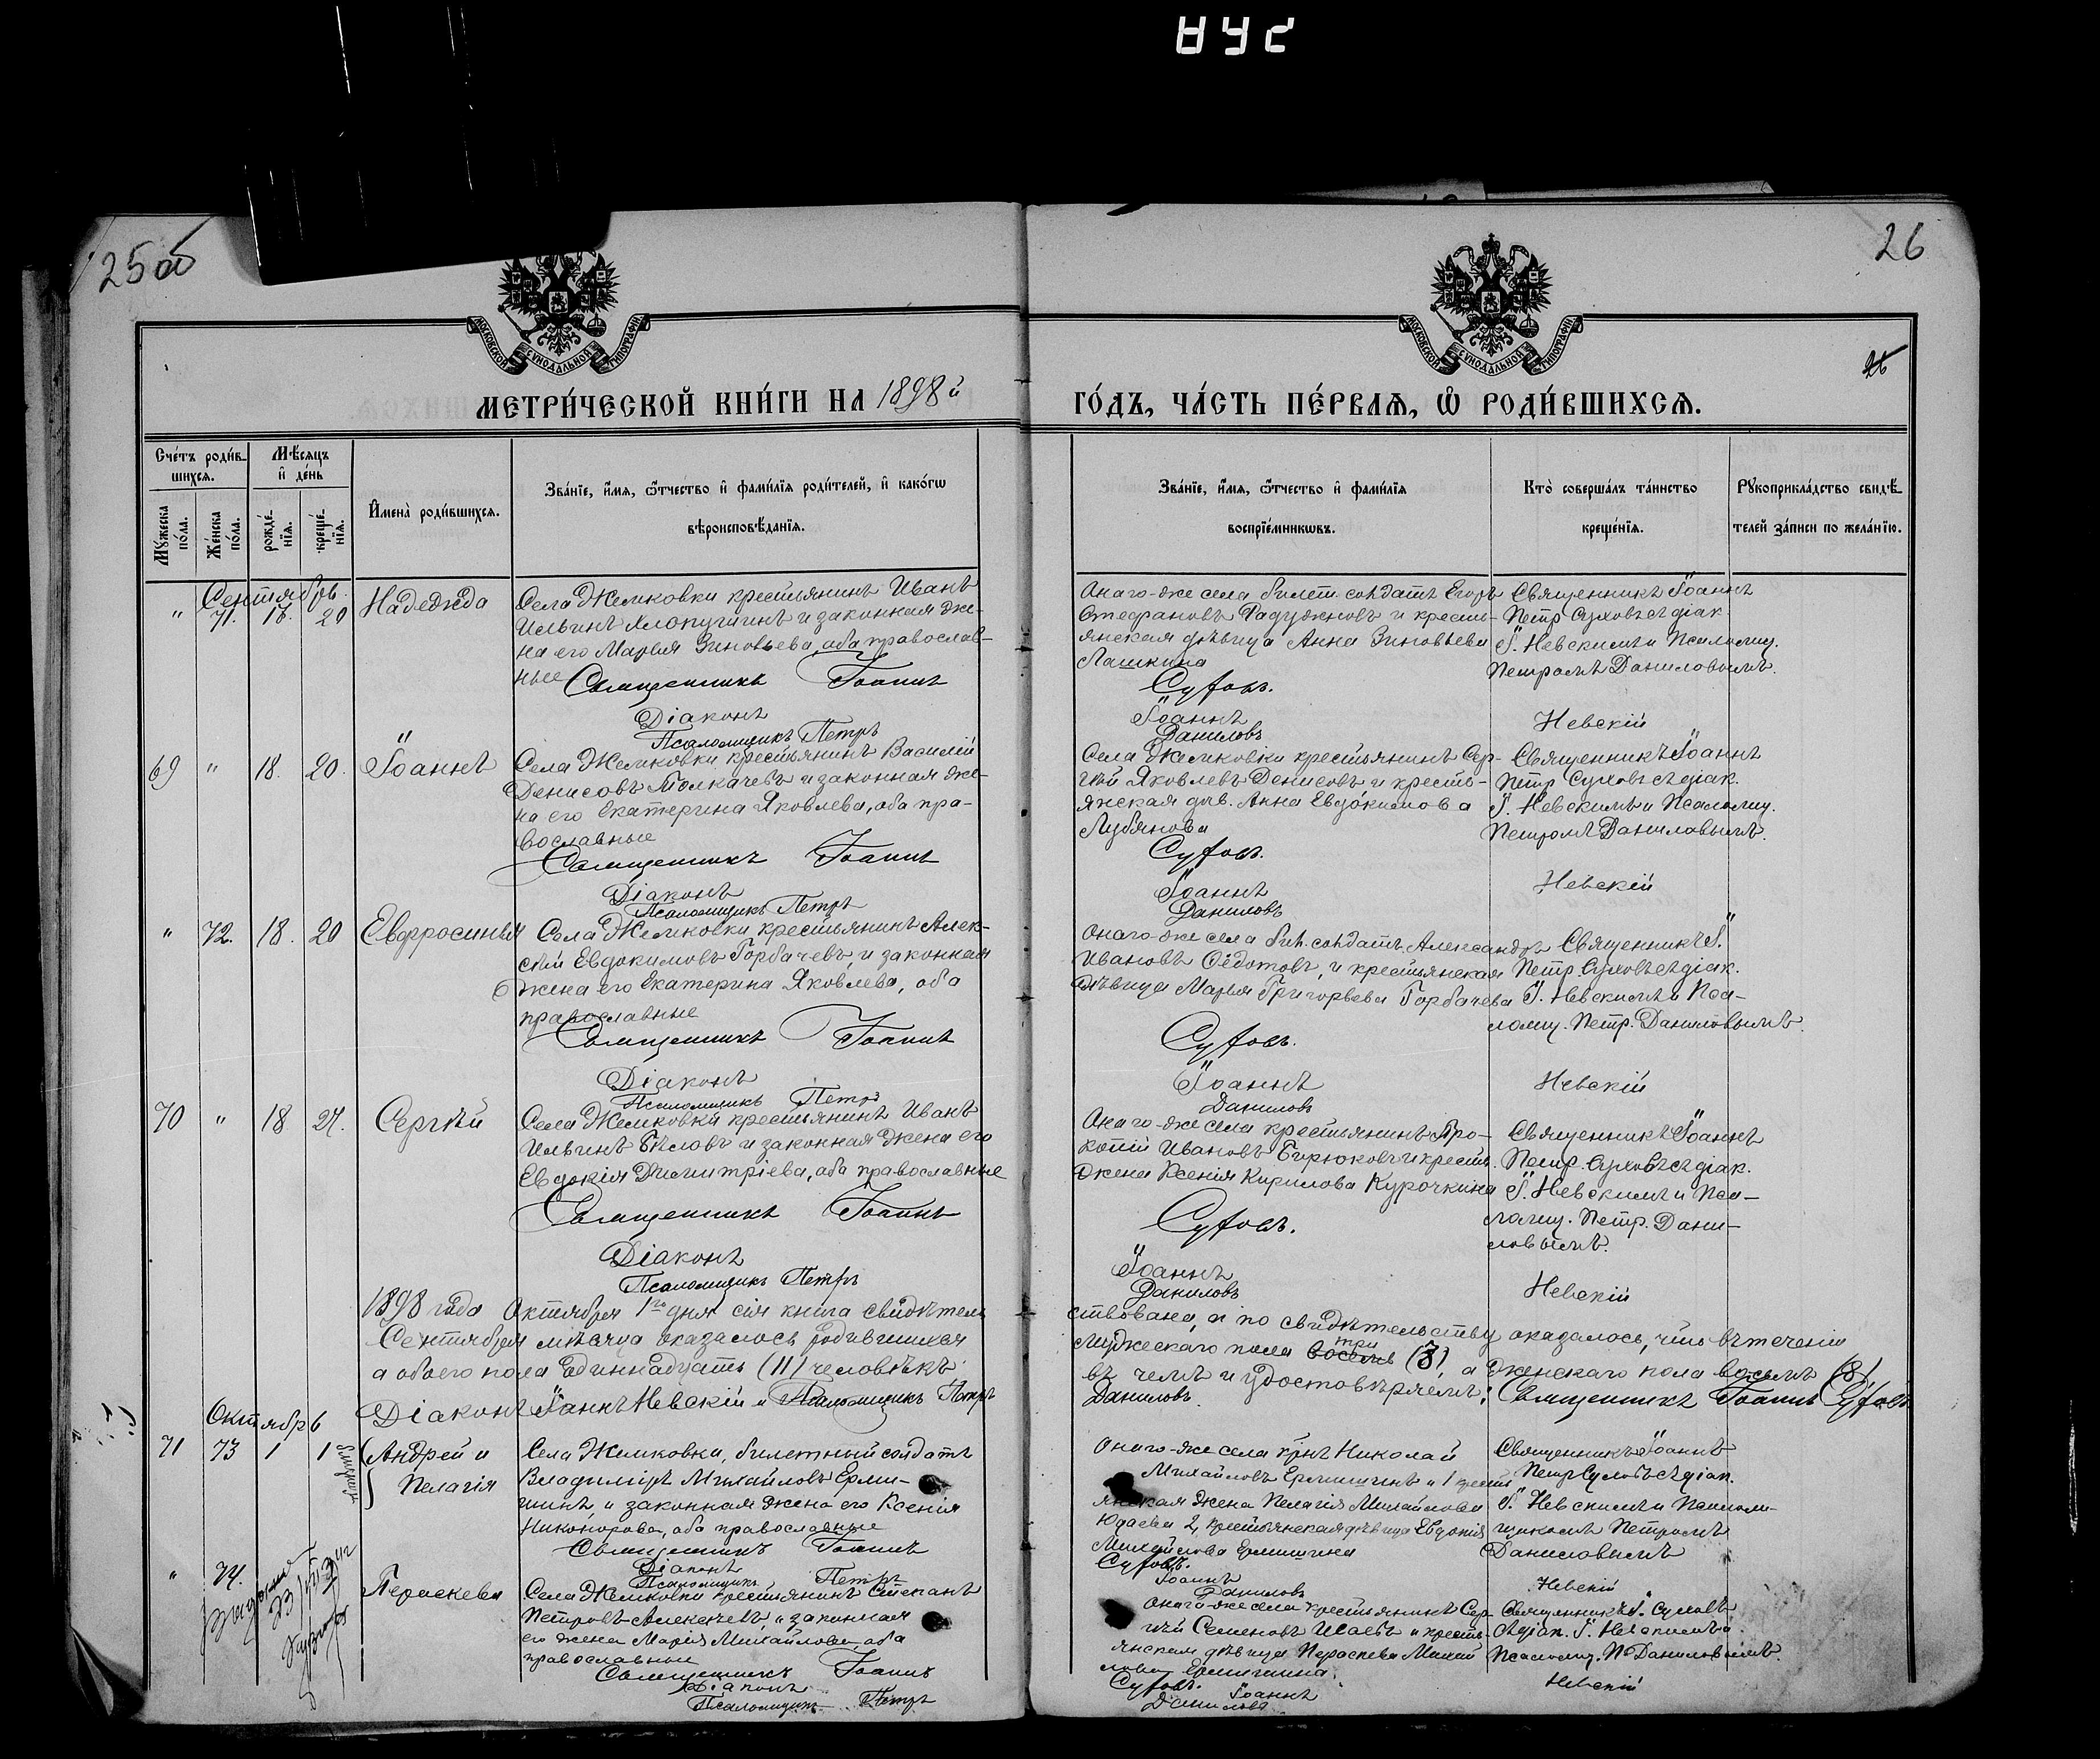 25 об
26
МОСКОВСКОЙ СУНОДАЛЬНОЙ ТИПОГРАФІИ
МОСКОВСКОЙ СУНОДАЛЬНОЙ ТИПОГРАФІИ
26
МЕТРИ́ЧЕСКОЙ КНИ́ГИ НА 1898 й
ГО́ДЪ, ЧА́СТЬ ПЕ́РВАЯ, Ѡ҆ РОДИ́ВШИХСЯ.
Сче́тъ роди́вшихся.
Мѹ́жеска по́ла.
Же́нска по́ла.
Мѣ́сяцъ и҆ де́нь
рожде́нїя.
креще́нїя.
И҆мена̀ роди́вшихся.
Зва́нїе, и҆́мя, ѻ҆́тчество и҆ фами́лїя роди́телей, и҆ како́гѡ
вѣроисповѣ́данїя.
Зва́нїе, и҆́мя, ѻ҆́тчество и҆ фами́лїя
воспрїе́мниковъ.
Кто̀ соверша́лъ та́инство
креще́нїя.
Рѹкоприкла́дство свидѣ́телей за́писи по жела́нїю.
Сентябрь.
" 71. 17. 20 Надежда
Села Жемковки крестьянинъ Иванъ
Ильинъ Хлопушинъ и законная же-
на его Марья Зиновьева, оба православ-
ные Священникъ Іоаннъ
Діаконъ
Псаломщикъ Петръ
Онаго-же села билет. солдатъ Егоръ
Стефановъ и кресть-
янская дѣвица Анна Зиновьева
Лашкина
Суховъ.
Іоаннъ
Даниловъ
Священникъ Іоаннъ
Петр. Суховъ съ діак.
І. Невскимъ и Псаломщ.
Петромъ Даниловымъ.
Невскій
69 " 18. 20. Іоаннъ
Села Жемковки крестьянинъ Василій
Денисовъ Толкачевъ и законная же-
на его Екатерина Яковлева, оба пра-
вославные
Священникъ Іоаннъ
Діаконъ
Псаломщикъ Петръ
Села Жемковки крестьянинъ Сер-
гѣй Яковлевъ Денисовъ и кресть-
янская дѣв. Анна Евдокимова
Суховъ.
Іоаннъ
Даниловъ
Священникъ Іоаннъ
Петр. Суховъ съ діак.
І. Невскимъ и Псаломщ.
Петромъ Даниловымъ.
Невскій
" 72. 18. 20 Евфросинья
Села Жемковки крестьянинъ Алек-
сѣй Евдокимовъ Горбачевъ, и законная
жена его Екатерина Яковлева, оба
православные
Священникъ Іоаннъ
Діаконъ
Псаломщикъ Петръ
Онаго-же села бил. солдатъ Александръ
Ивановъ Ѳедотовъ, и крестьянская
дѣвица Марья Григорьева Горбачева
Суховъ.
Іоаннъ
Даниловъ
Священникъ І.
Петр. Суховъ съ діак.
І. Невскимъ и Пса-
ломщ. Петр. Даниловымъ.
Невскій
70 " 18 27. Сергѣй
Села Жемковки крестьянинъ Иванъ
Ильинъ Бѣловъ и законная жена его
Евдокія Димитріева, оба православные
Священникъ Іоаннъ
Діаконъ
Псаломщикъ Петръ
Онаго-же села крестьянинъ Про-
копій Ивановъ Бирюковъ и крестья.
жена Ксенія Кирилова Курочкина
Суховъ.
Іоаннъ
Даниловъ
Священникъ Іоаннъ
Петр. Суховъ съ діак.
І. Невскимъ и Пса-
ломщ. Петр. Дани-
ловымъ.
Невскій
1898 года Октября 1го дня сія книга свидѣтель
ствована, и по свидѣтельству оказалось, что въ теченіи
Сентября мѣсяца оказалось родившихся
мужескаго пола восемь три (3), а женскаго пола восемь (8)
а обоего пола одиннадцать (11) человѣкъ
въ чемъ и удостовѣряемъ: Священникъ Іоаннъ Суховъ
Діаконъ Іоаннъ Невскій и Псаломщикъ Петръ
Даниловъ.
Октябрь
71 73 1 1 Андрей и
Пелагія
близнецы
Села Жемковка, билетный солдатъ
Владимиръ Михайловъ Ерми-
шинъ и законная жена его Ксенія
Никонорова, оба православные
Священникъ Іоаннъ
Діаконъ
Псаломщикъ Петръ
Онаго-же села кр̃нъ Николай
Михайловъ Ермишинъ и 1 крестья
янская жена Пелагія Михайлова
Юдаева 2, крестьянская дѣвица Евдокія
Михайлова Ермишина
Суховъ.
Іоаннъ
Даниловъ
Священникъ Іоаннъ
Петр. Суховъ съ діак.
І. Невскимъ и Псалом-
щикомъ Петромъ
Даниловымъ
Невскій
" 74. Параскева
Села Жемковки крестьянинъ Степанъ
Петровъ и законная
его жена Марія Михайлова, оба
православные
Священникъ Іоаннъ
Діаконъ
Псаломщикъ Петръ
Онаго-же села крестьянинъ Сер-
гѣй Семеновъ Исаевъ и кресть-
янская дѣвица Параскева Михай
лова Ермишина.
Суховъ.
Іоаннъ
Даниловъ
Священникъ І. Суховъ
съ діак. І. Невскимъ и
Псаломщ. П. Даниловымъ.
Невскій